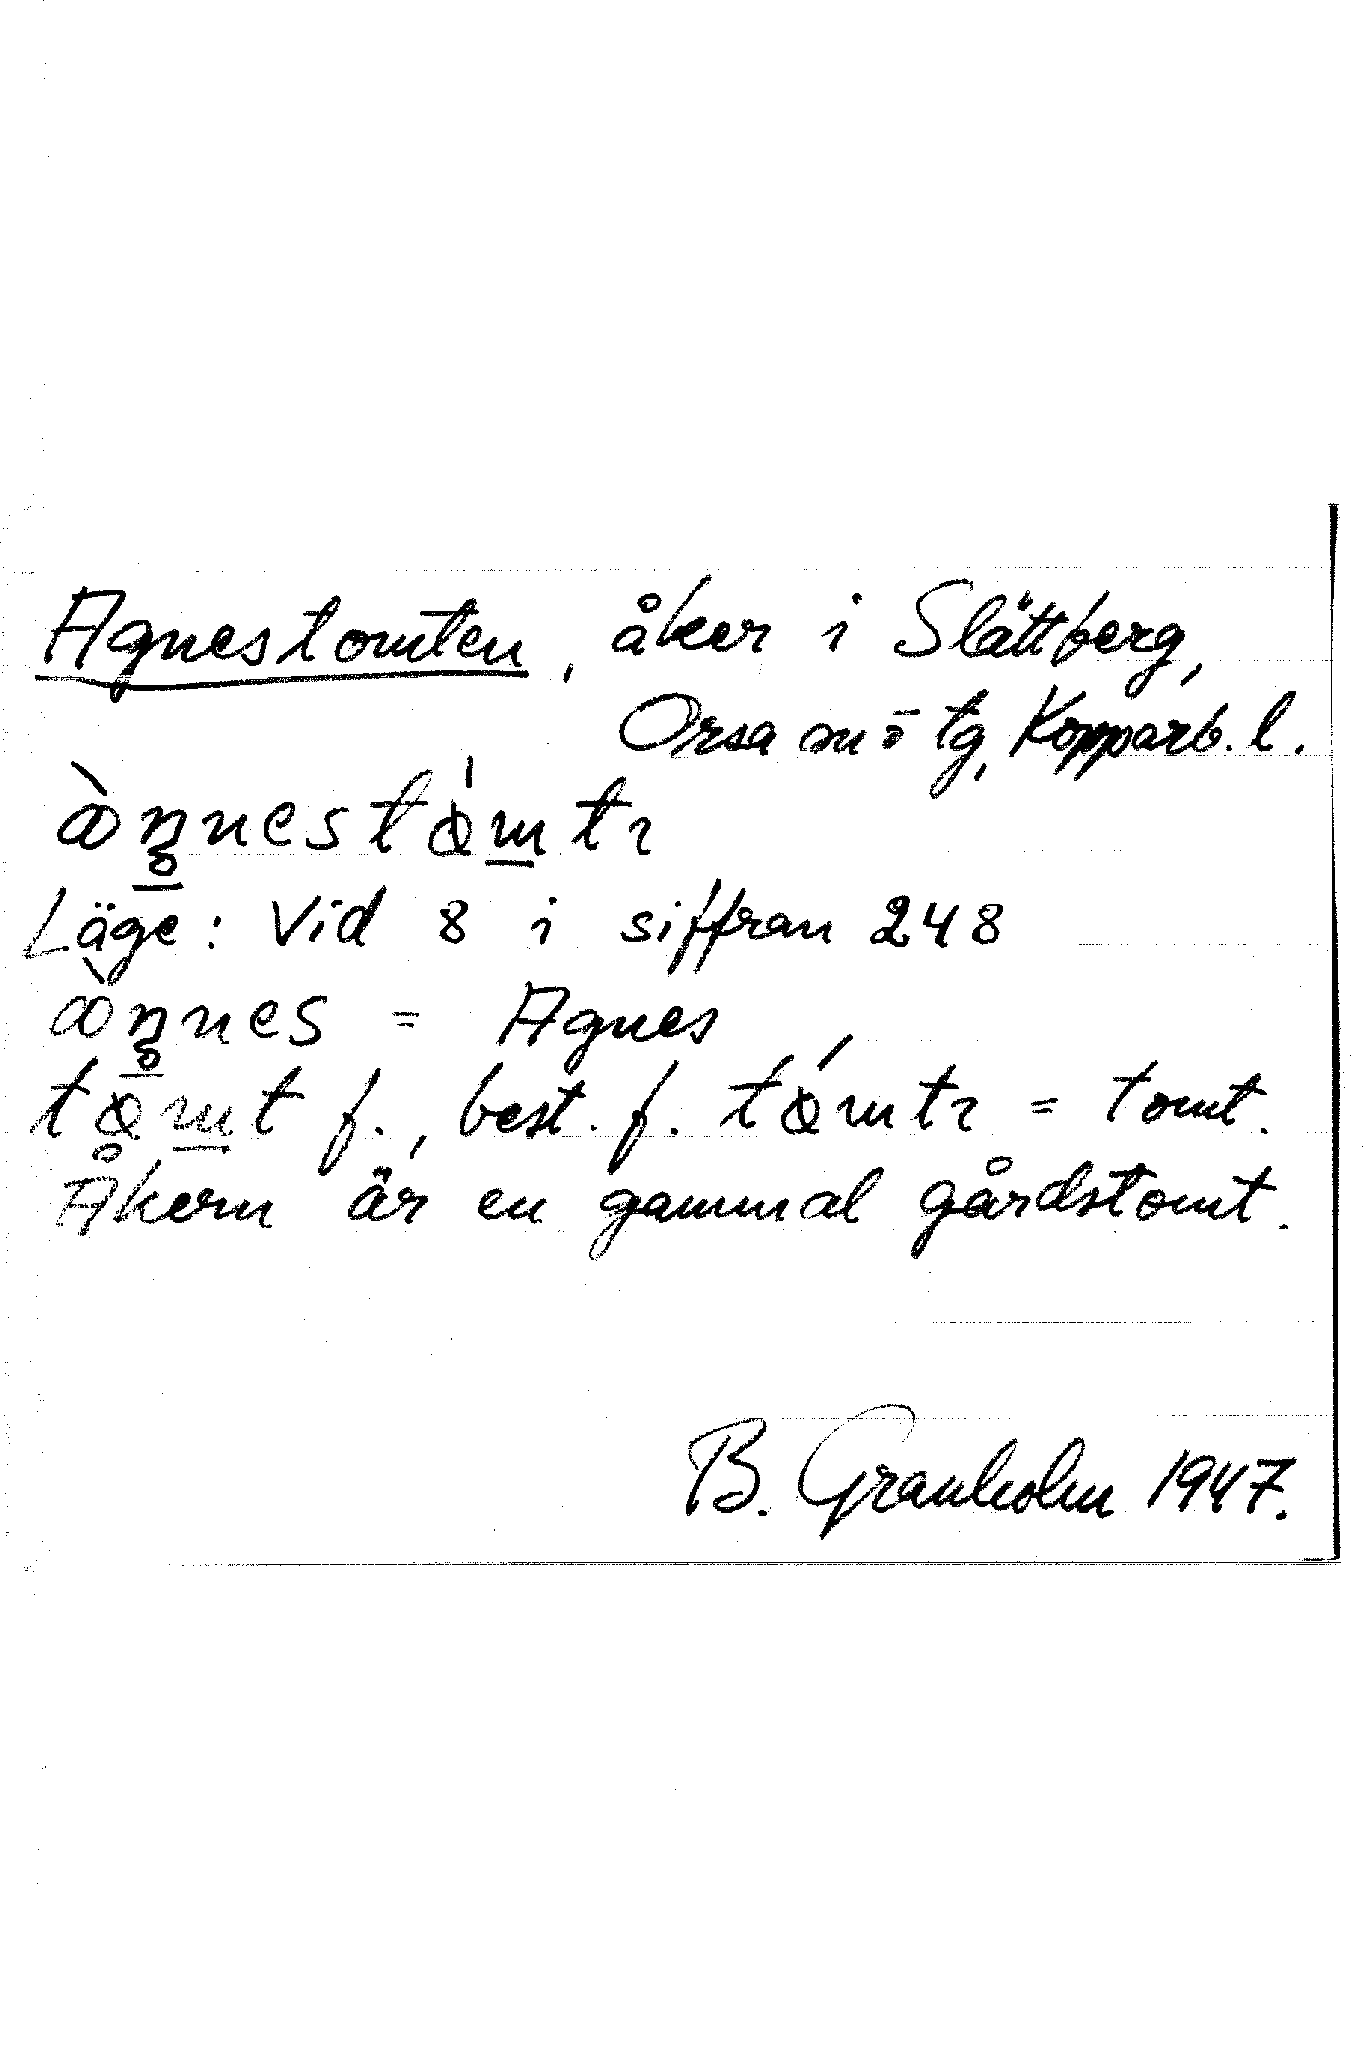 Agnestomten, åker i Slättberg,
Orsa m o tg, Kopparb. l.
Läge: Vid 8 i siffran 248
= Agnes
f., best. f. = tomt.
Åkern är en gammal gårdstomt.
B. Granholm 1947.